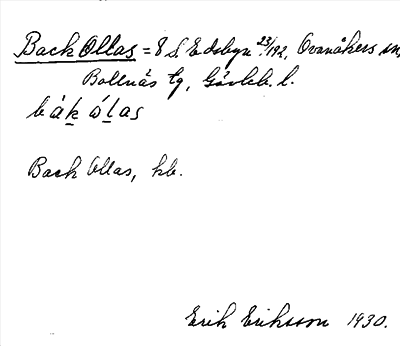 Back Ollas = 8 S. Edsbyn 23/192, Ovanåkers sn,
Bollnäs tg, Gävleb. l.
bák ólas
Back Ollas, kb.
Erik Eriksson 1930.